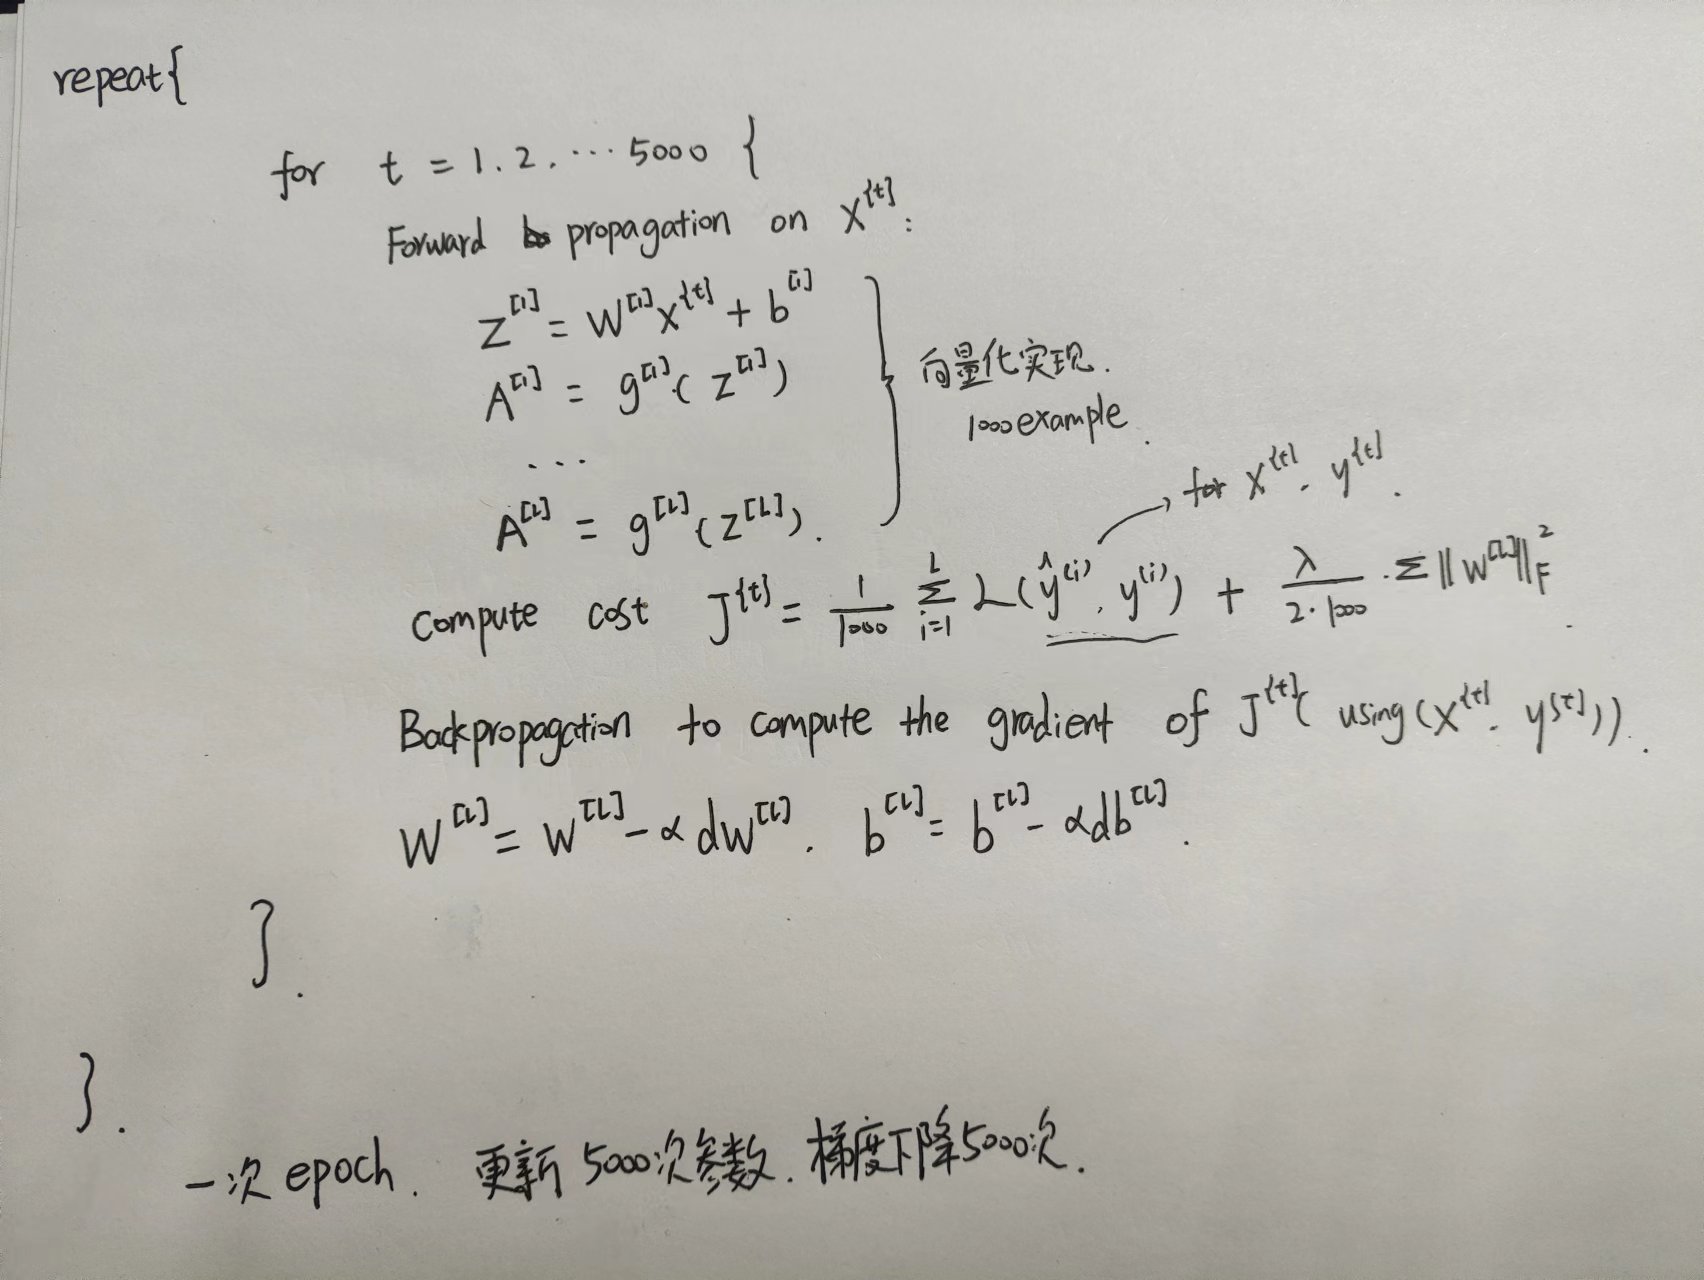 repeat{
for t = 1.2.…5000 {
Forward propagation on X^{t}:
Z^[1] = W^[1]X^{t} + b^[1]
A^[1] = g^[1](Z^[1])
...
A^[L] = g^[L](Z^[L]).
向量化实现.
1000example.
→ for X^{t}. y^{t}.
compute cost J^{t} = 1/1000 Σ_{i=1}^{L} L(ŷ^(i), y^(i)) + λ/(2·1000) · Σ‖W^[L]‖_F^2.
Backpropagation to compute the gradient of J^{t}( using(X^{t}. y^{t})).
W^[L] = W^[L] - αdW^[L]. b^[L] = b^[L] - αdb^[L].
}.
}.
一次epoch. 更新5000次参数.梯度下降5000次.